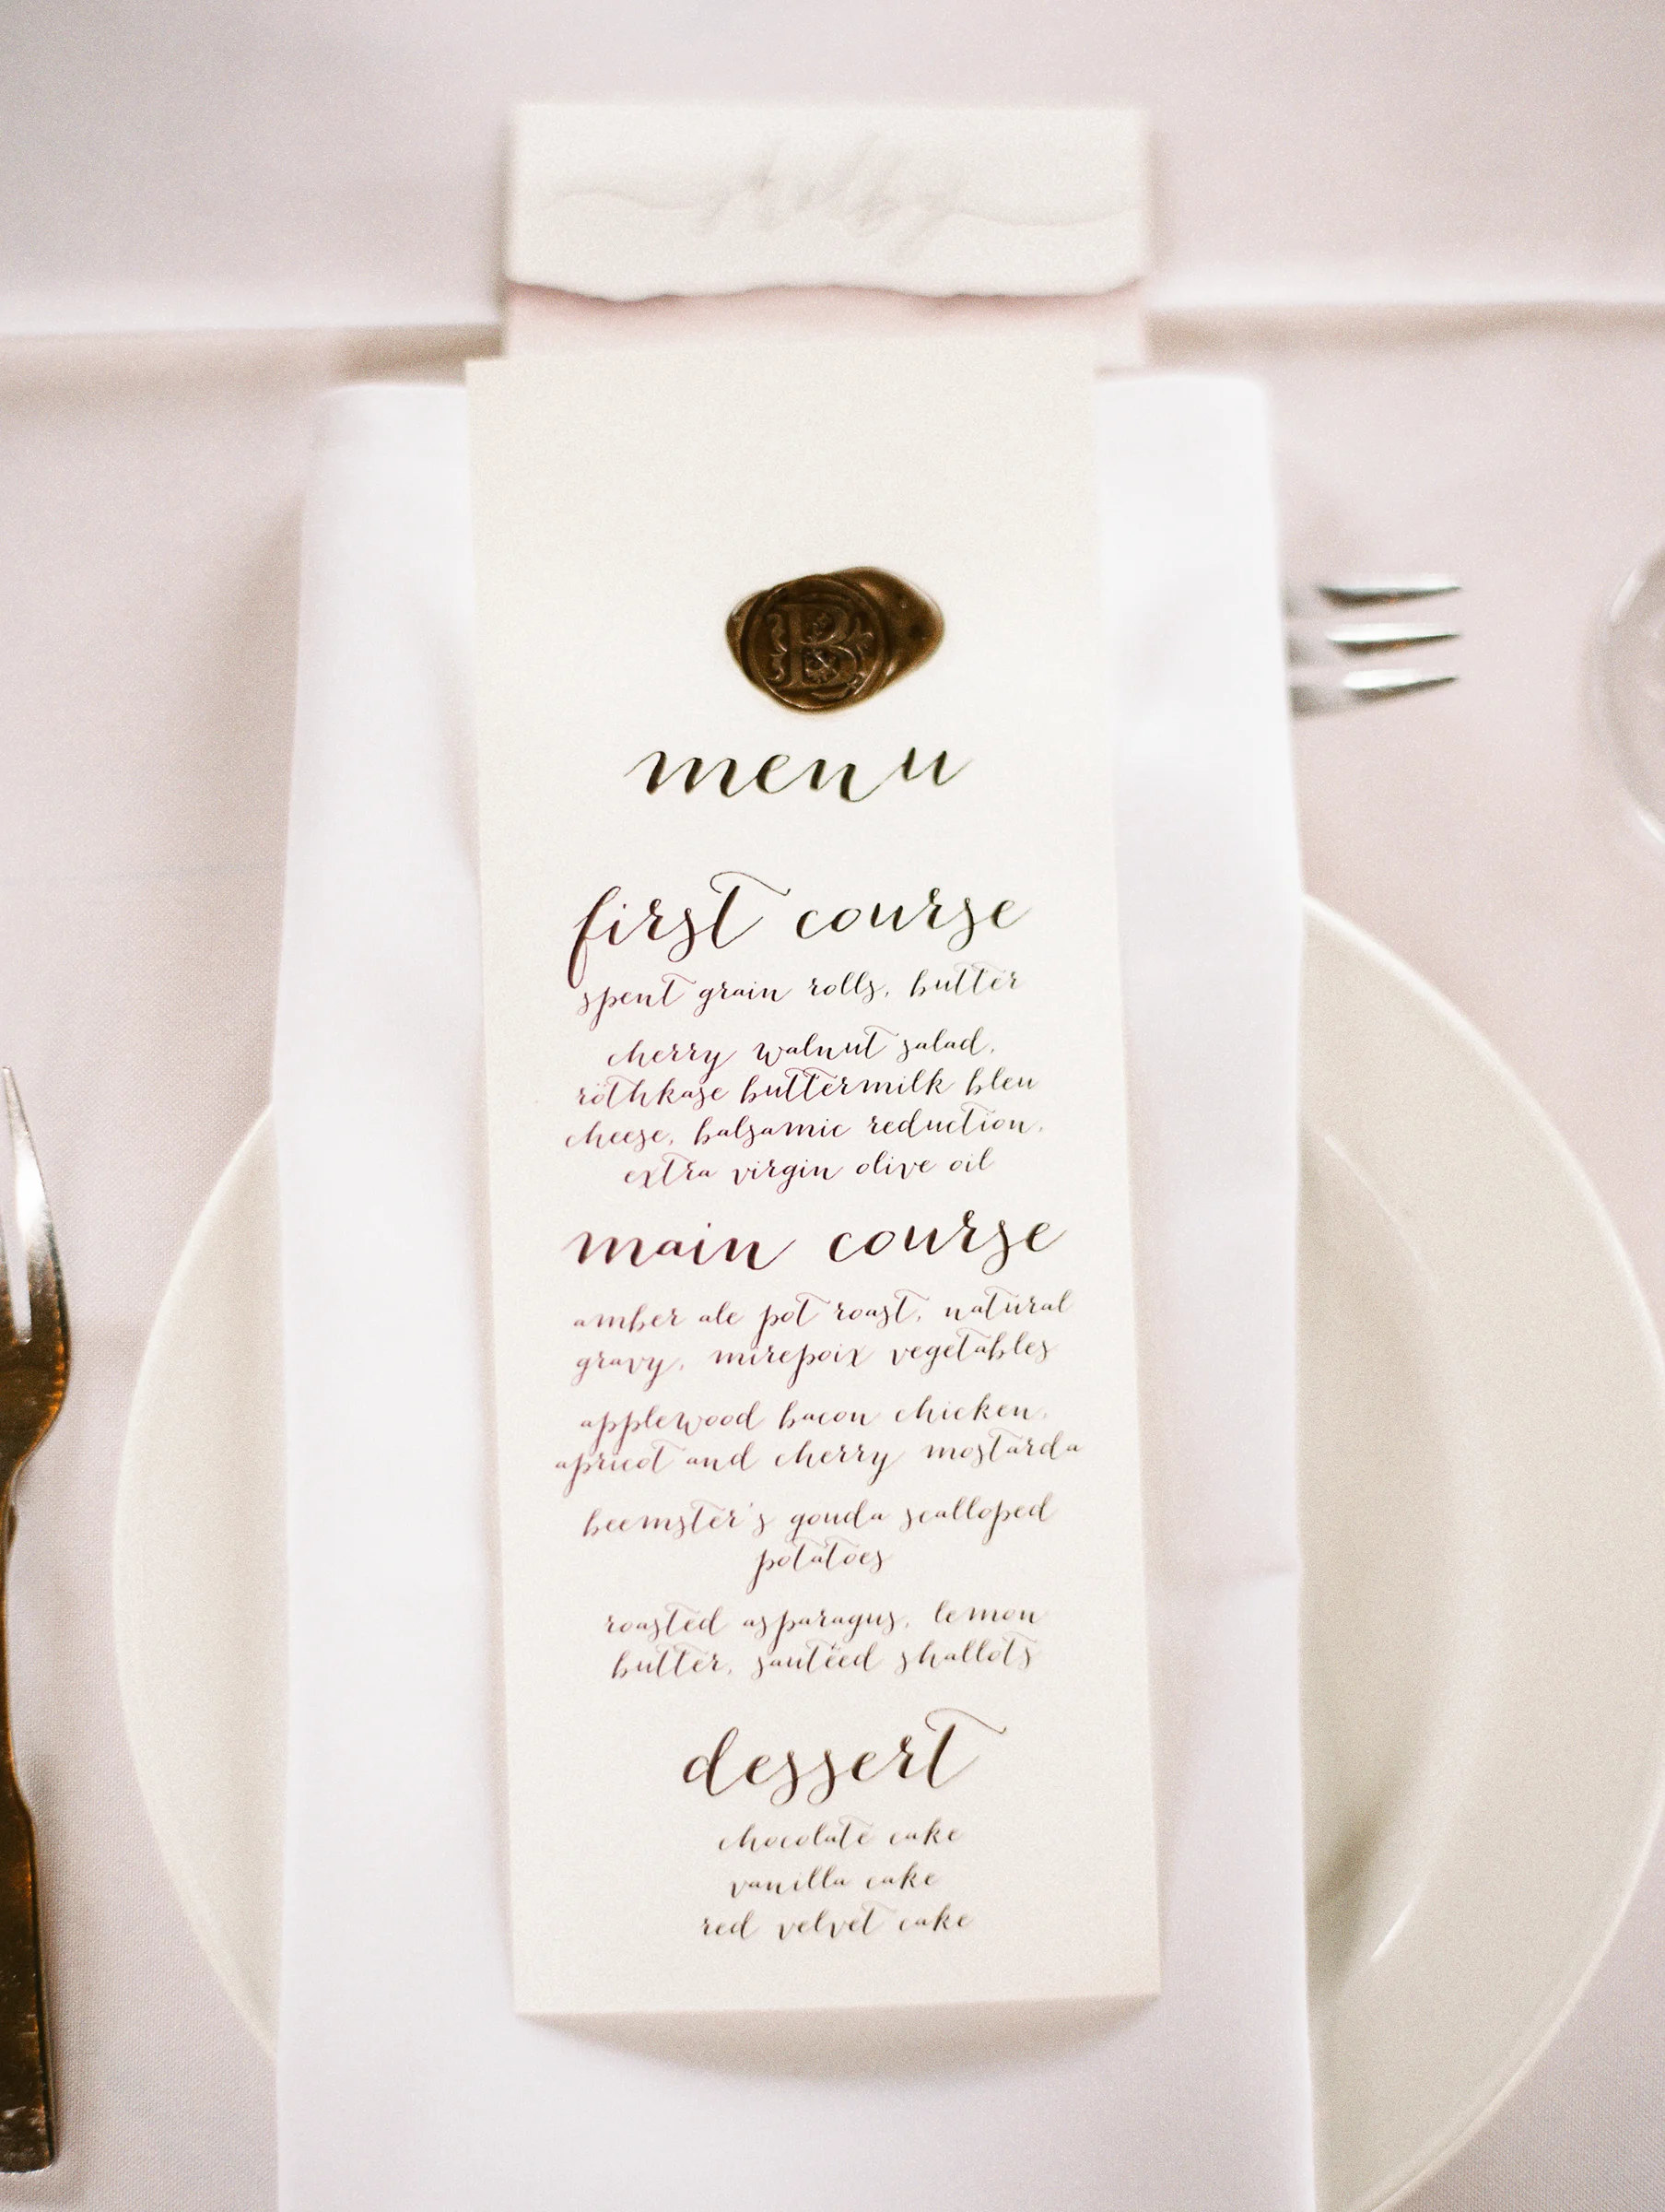 B
menu
first course
spent grain rolls, butter
cherry walnut salad,
röthkase buttermilk bleu
cheese, balsamic reduction,
extra virgin olive oil
main course
amber ale pot roast, natural
gravy, mirepoix vegetables
applewood bacon chicken,
apricot and cherry mostarda
beemster's gouda scalloped
potatoes
roasted asparagus, lemon
butter, sautéed shallots
dessert
chocolate cake
vanilla cake
red velvet cake